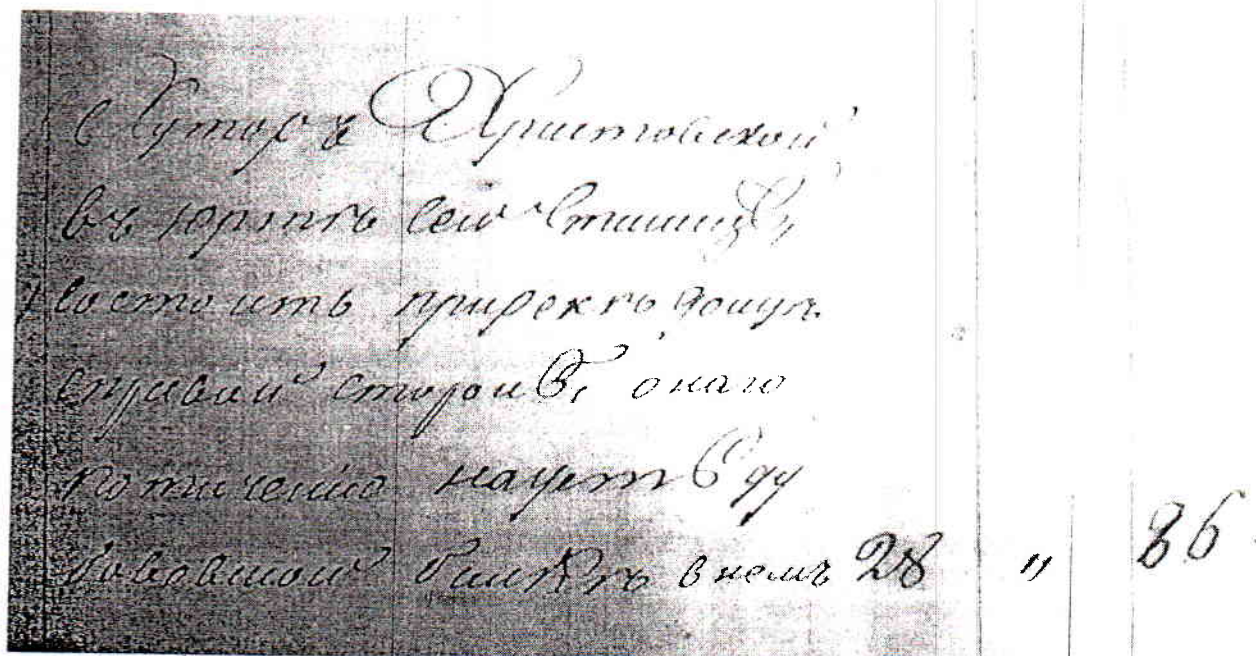 Хуторъ Христовской
въ юртѣ сей станицы,
состоитъ при рекѣ Донцѣ
с правой стороны онаго
по течению на
балкѣ в немъ 28 " 86